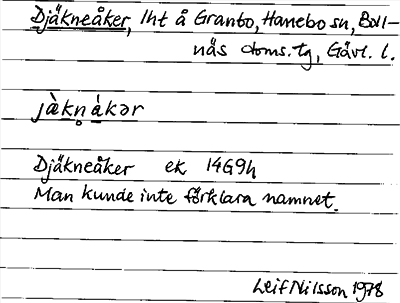 Djäkneåker, lht å Granbo, Hanebo sn, Boll-
näs doms.tg, Gävl. l.
jὰkn̥ákər
Djäkneåker ek 14G9h
Man kunde inte förklara namnet.
Leif Nilsson 1978